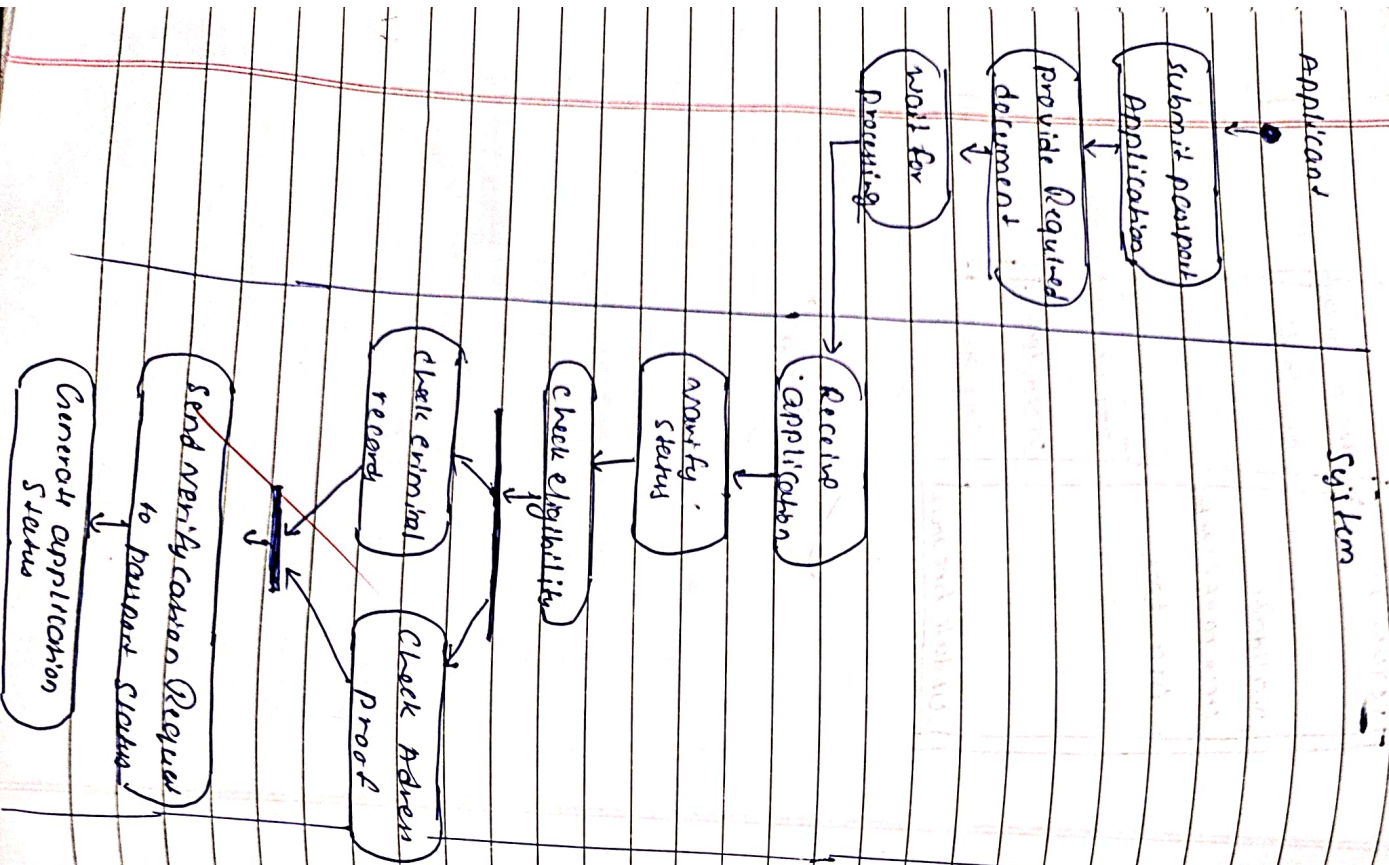 Applicant
System
submit passport
Application
Provide Required
document
wait for
processing
Receive
application
Varify
status
check eligibility
check criminal
record
Check Adress
proof
Send verification Reques
to passport status
Generate application
Status